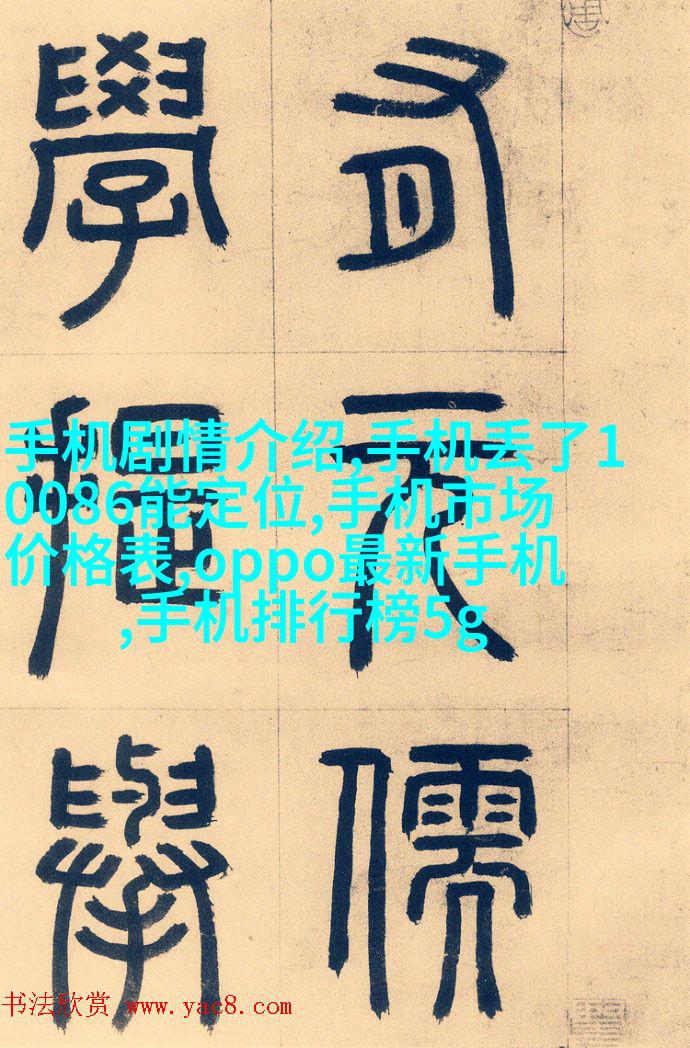 有元儒
學提舉
手机剧情介绍,手机丢了1
0086能定位,手机市场
价格表,oppo最新手机
,手机排行榜5g
书法欣赏 www.yac8.com